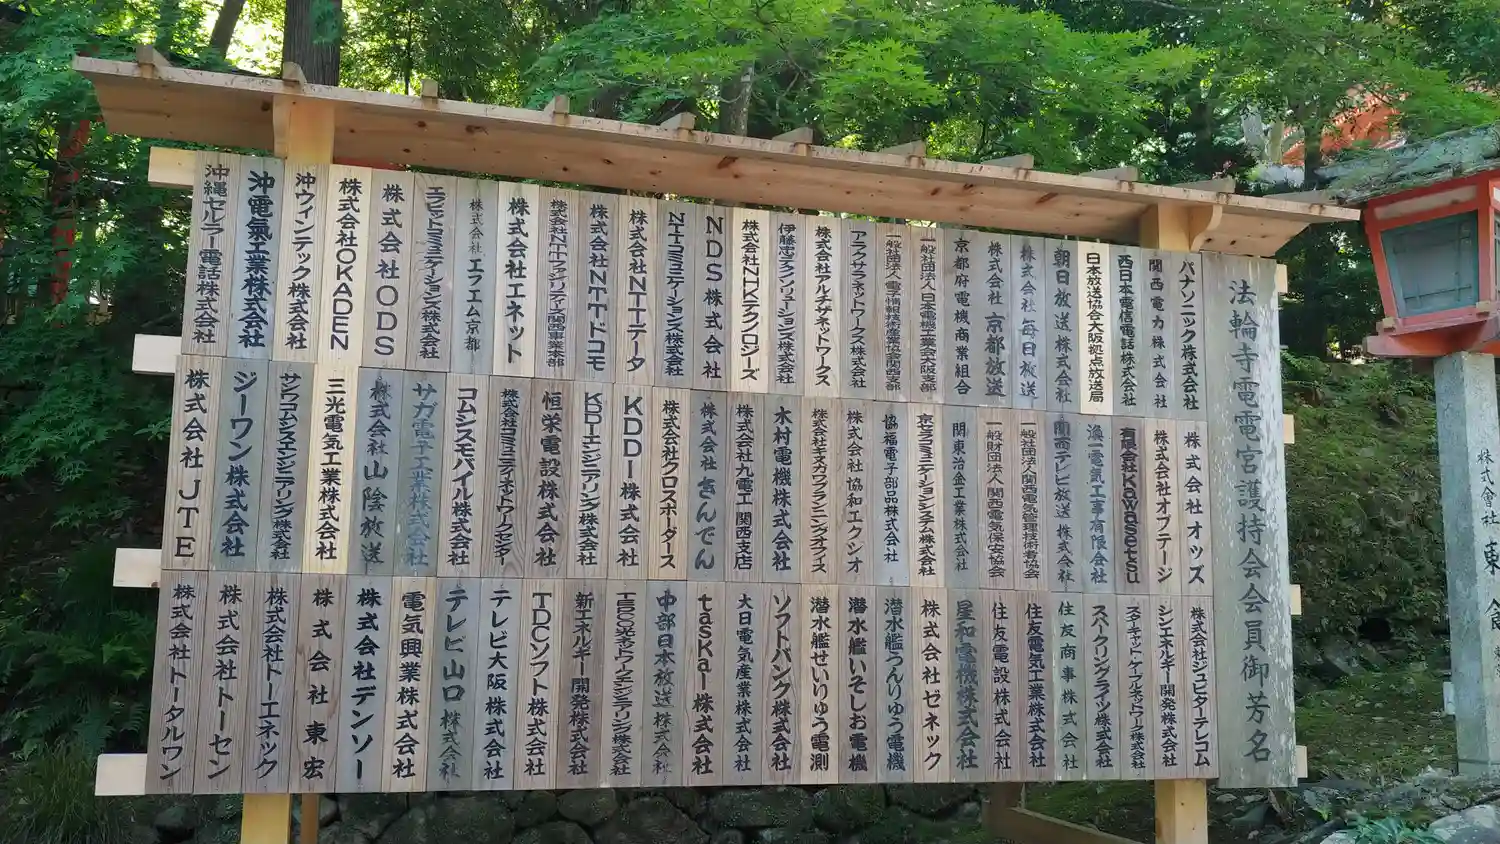 法輪寺電電宮護持会会員御芳名
パナソニック株式会社
関西電力株式会社
西日本電信電話株式会社
日本放送協会大阪拠点放送局
朝日放送株式会社
株式会社毎日放送
株式会社京都放送
京都府電機商業組合
一般社団法人日本電機工業会大阪支部
一般社団法人電子情報技術産業協会関西支部
アラクサラネットワークス株式会社
株式会社アルチザネットワークス
伊藤忠テクノソリューションズ株式会社
株式会社NHKテクノロジーズ
NDS株式会社
NTTコミュニケーションズ株式会社
株式会社NTTデータ
株式会社NTTドコモ
株式会社NTTファシリティーズ関西事業本部
株式会社エネット
株式会社エフエム京都
エフビットコミュニケーションズ株式会社
株式会社ODS
株式会社OKADEN
沖ウィンテック株式会社
沖電氣工業株式会社
沖縄セルラー電話株式会社
株式会社オッズ
株式会社オプテージ
有限会社Kawasetsu
渙一電気工事有限会社
関西テレビ放送株式会社
一般社団法人関西電気管理技術者協会
一般財団法人関西電気保安協会
関東冶金工業株式会社
京セラコミュニケーションシステム株式会社
協福電子部品株式会社
株式会社協和エクシオ
株式会社キヌカワプランニングオフィス
木村電機株式会社
株式会社九電工関西支店
株式会社きんでん
株式会社クロスボーダーズ
KDDI株式会社
KDDIエンジニアリング株式会社
恒栄電設株式会社
株式会社コミュニティネットワークセンター
コムシスモバイル株式会社
サガ電子工業株式会社
株式会社山陰放送
三光電気工業株式会社
サンワコムシスエンジニアリング株式会社
ジーワン株式会社
株式会社JTE
株式会社ジュピターテレコム
シンエネルギー開発株式会社
スターキャット・ケーブルネットワーク株式会社
スパークリングライツ株式会社
住友商事株式会社
住友電気工業株式会社
住友電設株式会社
星和電機株式会社
株式会社ゼネック
潜水艦うんりゅう電機
潜水艦いそしお電機
潜水艦せいりゅう電測
ソフトバンク株式会社
大日電気産業株式会社
taskar株式会社
中部日本放送株式会社
新エネルギー開発株式会社
TDCソフト株式会社
テレビ大阪株式会社
テレビ山口株式会社
電気興業株式会社
株式会社デンソー
株式会社東宏
株式会社トーエネック
株式会社トーセン
株式会社トータルワン
株式會社東